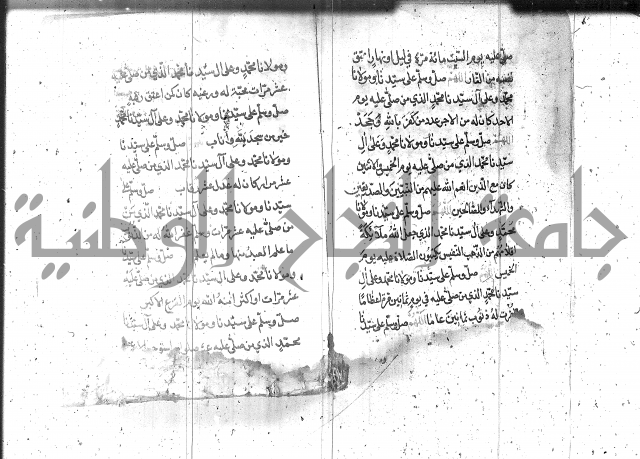 صل عليه يوم السبت مائة مرة في ليل او نهار اعتق
نفسه من النار اللهم صل وسلم على سيدنا ومولانا
محمد وعلى آل سيدنا محمد الذي من صلى عليه يوم
الاحد كان له من الاجر عدد من كفر بالله وجحد
اللهم صل وسلم على سيدنا ومولانا محمد وعلى ال
سيدنا محمد الذي من صلى عليه يوم الخميس والاثنين
كان مع الذين انعم الله عليهم من النبيين والصديقين
والشهداء والصالحين اللهم صل وسلم على سيدنا ومولانا
محمد وعلى آل سيدنا محمد الذي جعل الله ملائكة
اقلامهم من الذهب يكتبون الصلاة عليه يوم
الخميس اللهم صل وسلم على سيدنا ومولانا محمد وعلى ال
سيدنا محمد الذي من صلى عليه في يوم ثمانين مرة اعظاما
غفرت له ذنوب ثمانين عاما اللهم صل وسلم على سيدنا
ومولانا محمد وعلى ال سيدنا محمد الذي من صلى عليه
عشر مرات محبة له ورغبة كان كمن اعتق رقبة
صل وسلم على سيدنا ومولانا محمد وعلى آل سيدنا محمد
خير من سجد لله واناب صل وسلم على سيدنا
ومولانا محمد وعلى آل سيدنا محمد الذي من صلى عليه
عشر مرات كان له عدل عشر رقاب صل وسلم على
سيدنا ومولانا محمد وعلى آل سيدنا محمد الذي من
من صلى عليه عشر مرات
ومولانا محمد وعلى آل سيدنا محمد الذي من صلى عليه
عشر مرات او اكثر امنه الله يوم الفزع الاكبر
صل وسلم على سيدنا ومولانا محمد وعلى آل سيدنا
محمد الذي من صلى عليه
جامعة النجاح الوطنية